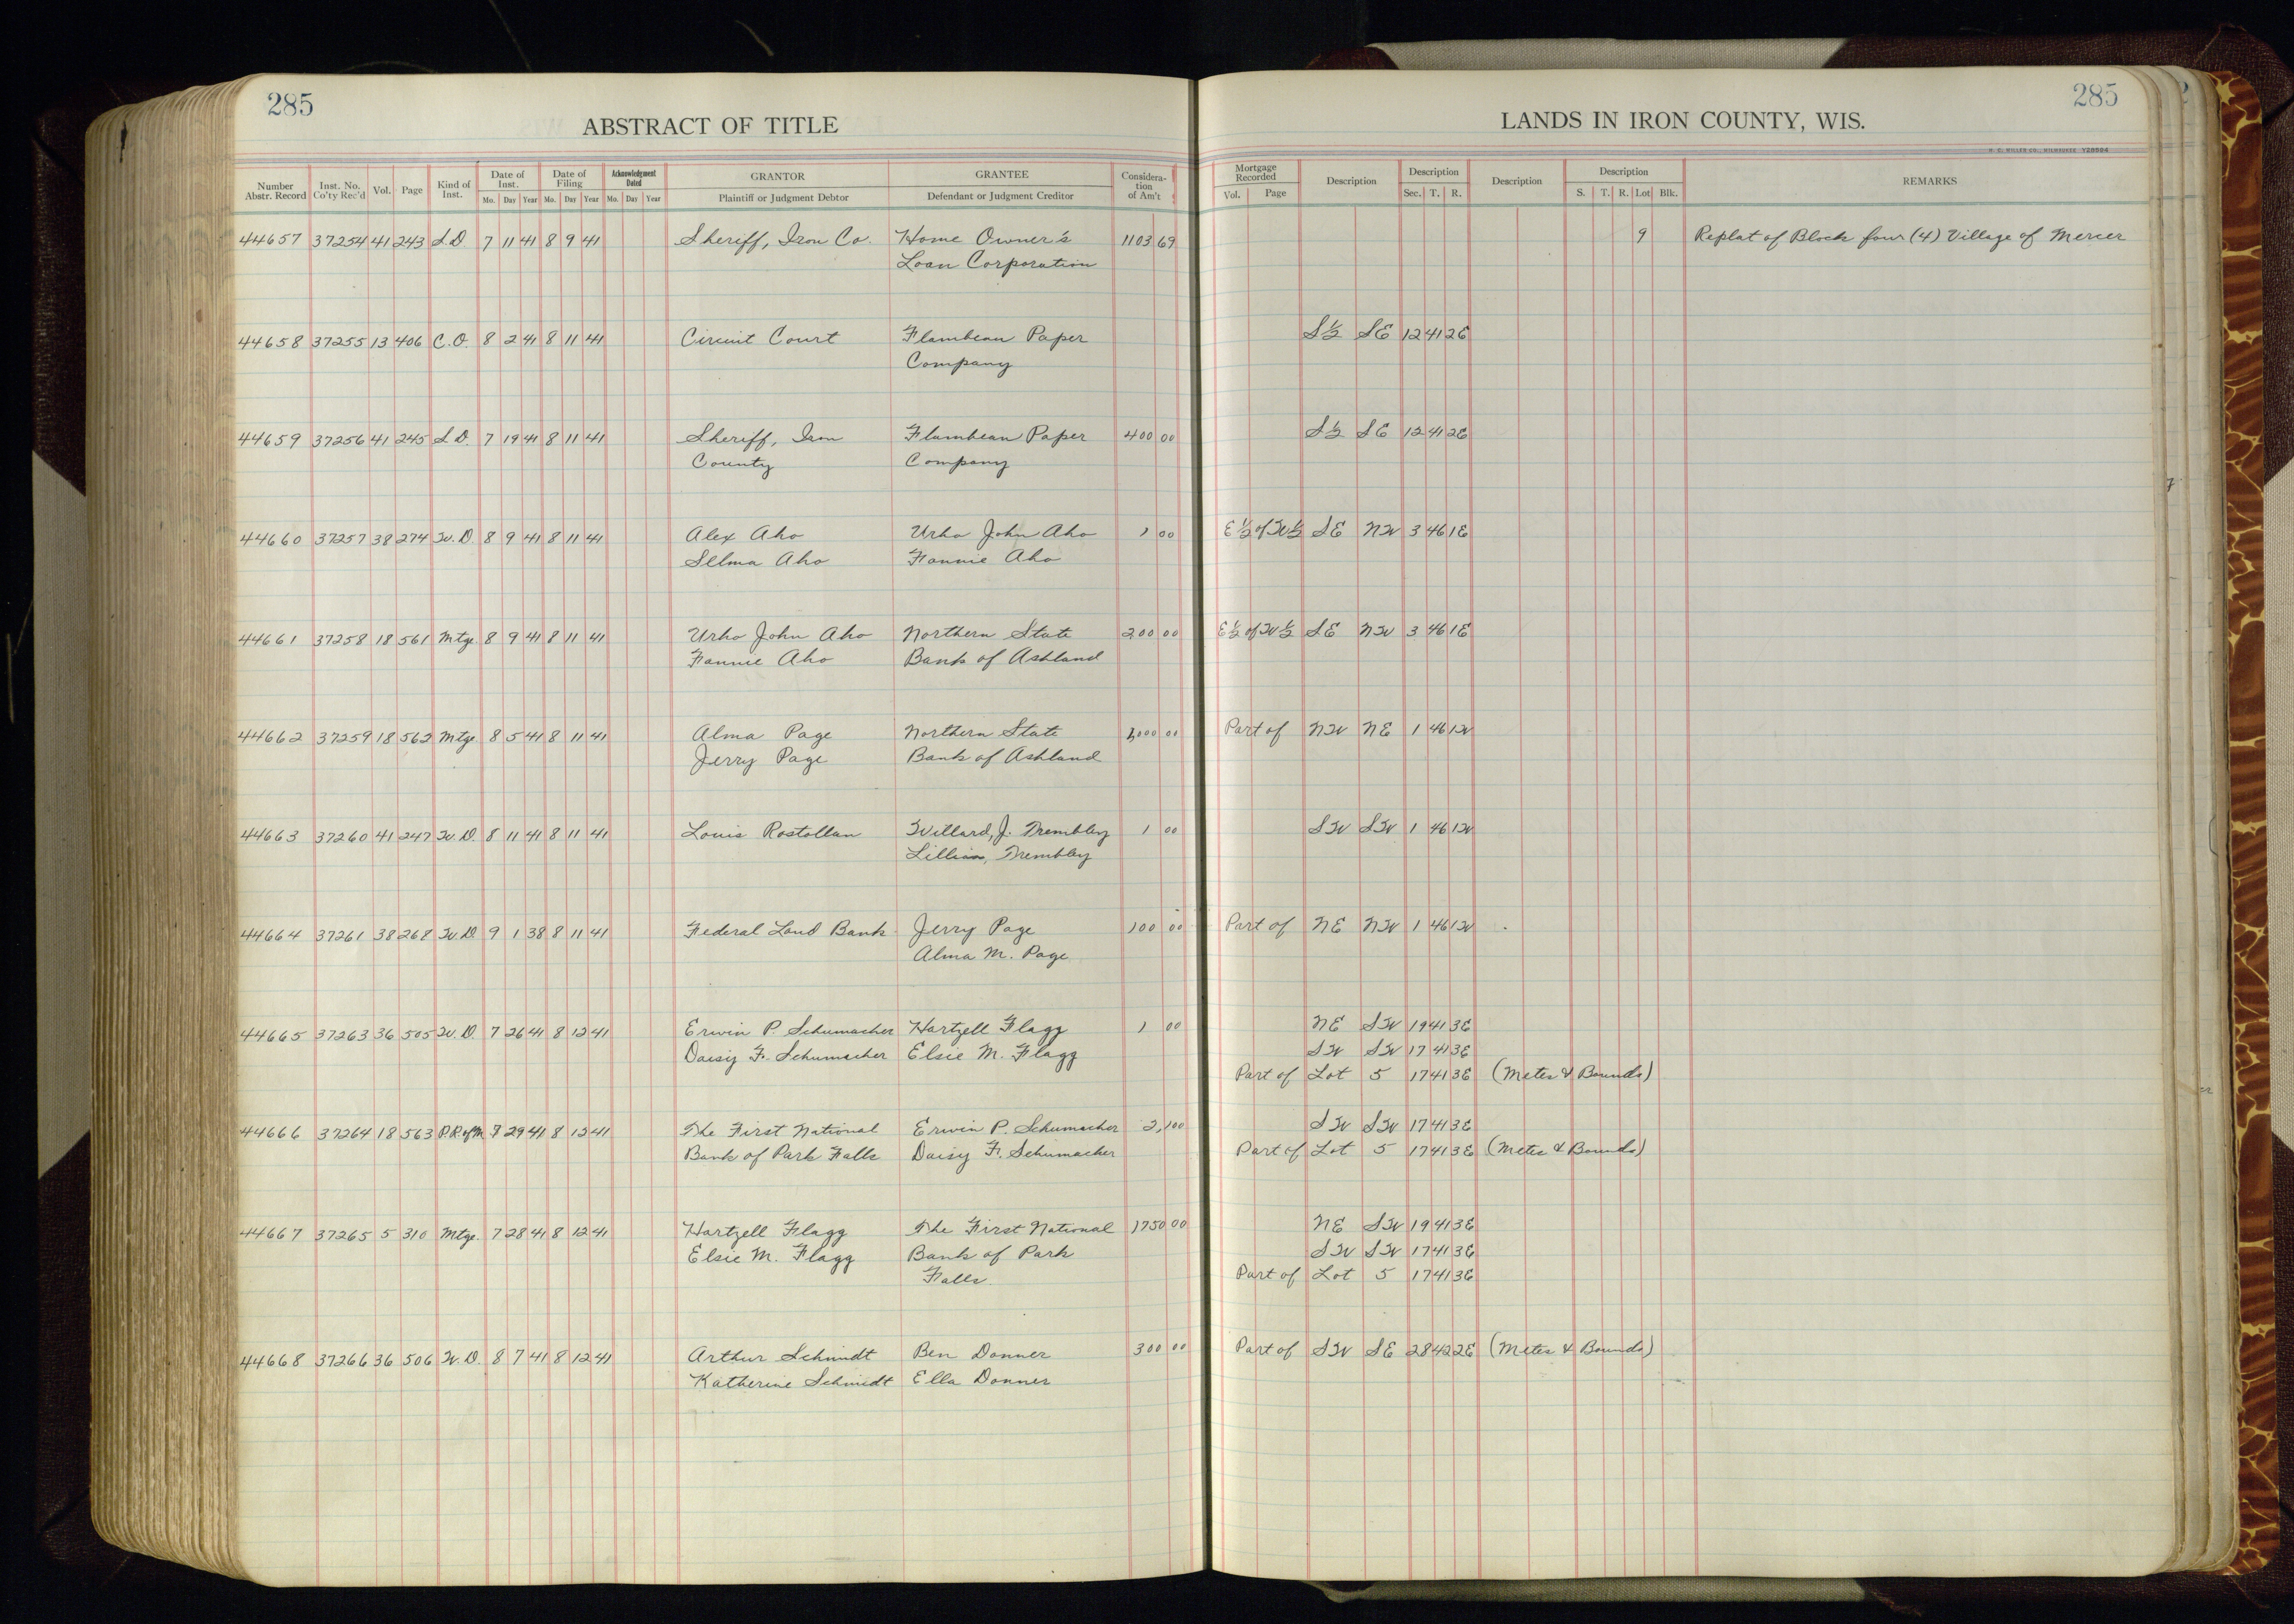 285
285
ABSTRACT OF TITLE
LANDS IN IRON COUNTY, WIS.
H. C. MILLER CO., MILWAUKEE Y28594
Number Abstr. Record Inst. No. Co'ty Rec'd Vol. Page Kind of Inst. Date of Inst. Mo. Day Year Date of Filing Mo. Day Year Acknowledgment Dated Mo. Day Year GRANTOR Plaintiff or Judgment Debtor GRANTEE Defendant or Judgment Creditor Consideration of Am't Mortgage Recorded Vol. Page Description Description Sec. T. R. Description Description S. T. R. Lot Blk. REMARKS
44657 37254 41 243 S.D. 7 11 41 8 9 41 Sheriff, Iron Co. Home Owner's 1103 69 9 Replat of Block four (4) Village of Mercer
Loan Corporation
44658 37255 13 406 C.O. 8 2 41 8 11 41 Circuit Court Flambeau Paper S½ SE 12 41 2E
Company
44659 37256 41 245 S.D. 7 19 41 8 11 41 Sheriff, Iron Flambeau Paper 400 00 S½ SE 12 41 2E
County Company
44660 37257 38 274 W.D. 8 9 41 8 11 41 Alex Aho Urho John Aho 1 00 E½ of W½ SE NW 3 46 1E
Selma Aho Fannie Aho
44661 37258 18 561 Mtge 8 9 41 8 11 41 Urho John Aho Northern State 200 00 E½ of W½ SE NW 3 46 1E
Fannie Aho Bank of Ashland
44662 37259 18 562 Mtge 8 5 41 8 11 41 Alma Page Northern State 1,000 00 Part of NW NE 1 46 1W
Jerry Page Bank of Ashland
44663 37260 41 247 W.D. 8 11 41 8 11 41 Louis Rostollan Willard, J. Trembley 1 00 SW SW 1 46 1W
Lillian, Trembley
44664 37261 38 268 W.D. 9 1 38 8 11 41 Federal Land Bank Jerry Page 100 00 Part of NE NW 1 46 1W
Alma M. Page
44665 37263 36 505 W.D. 7 26 41 8 12 41 Erwin P. Schumacher Hartzell Flagg 1 00 NE SW 19 41 3E
Daisy F. Schumacher Elsie M. Flagg SW SW 17 41 3E
Part of Lot 5 17 41 3E (Metes & Bounds)
44666 37264 18 563 P.R. of M. 7 29 41 8 12 41 The First National Erwin P. Schumacher 2,100 SW SW 17 41 3E
Bank of Park Falls Daisy F. Schumacher Part of Lot 5 17 41 3E (Metes & Bounds)
44667 37265 5 310 Mtge. 7 28 41 8 12 41 Hartzell Flagg The First National 1750 00 NE SW 19 41 3E
Elsie M. Flagg Bank of Park SW SW 17 41 3E
Falls Part of Lot 5 17 41 3E
44668 37266 36 506 W.D. 8 7 41 8 12 41 Arthur Schmidt Ben Donner 300 00 Part of SW SE 28 42 2E (Metes & Bounds)
Katherine Schmidt Ella Donner